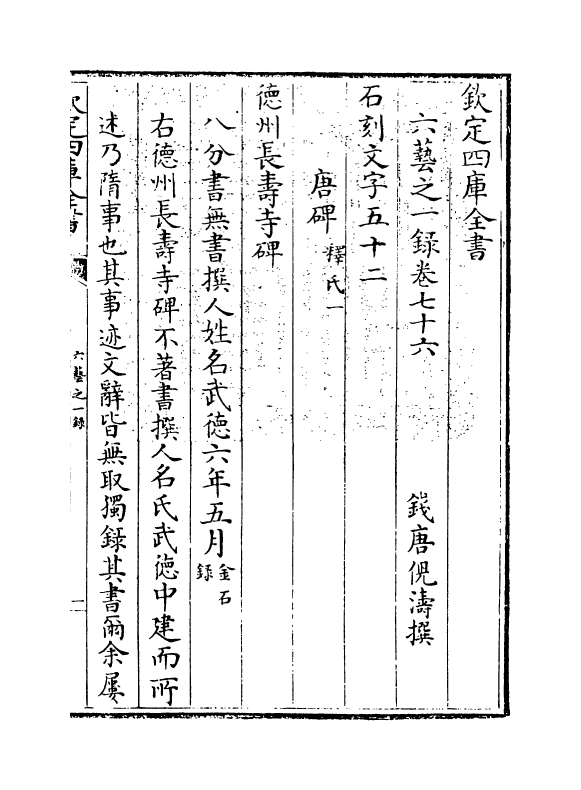 欽定四庫全書
六藝之一錄卷七十六
錢唐倪濤撰
石刻文字五十二
唐碑 釋氏一
德州長壽寺碑
八分書無書撰人姓名武德六年五月 金石錄
右德州長壽寺碑不著書撰人名氏武德中建而所
述乃隋事也其事迹文辭皆無取獨錄其書爾余屢
欽定四庫全書
六藝之一錄